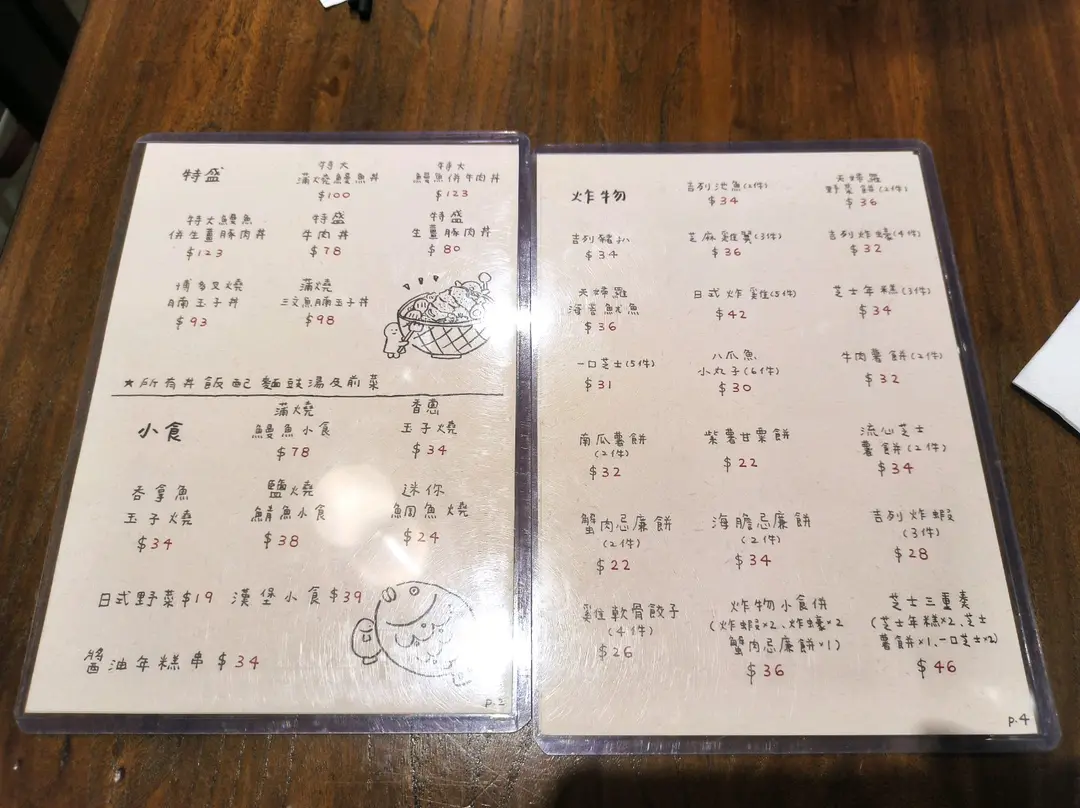 特盛
特大
蒲燒鰻魚丼
$100
特大
鰻魚併牛肉丼
$123
特大鰻魚
併生薑豚肉丼
$123
特盛
牛肉丼
$78
特盛
生薑豚肉丼
$80
博多叉燒
腩玉子丼
$93
蒲燒
三文魚腩玉子丼
$98
★所有丼飯配麵豉湯及前菜
小食
蒲燒
鰻魚小食
$78
香蔥
玉子燒
$34
吞拿魚
玉子燒
$34
鹽燒
鯖魚小食
$38
迷你
鯛魚燒
$24
日式野菜$19 漢堡小食$39
醬油年糕串$34
p.2
炸物
吉列池魚(2件)
$34
天婦羅
野菜餅(2件)
$36
吉列豬扒
$34
芝麻雞翼(3件)
$36
吉列炸蠔(4件)
$32
天婦羅
海苔魷魚
$36
日式炸雞(5件)
$42
芝士年糕(3件)
$34
一口芝士(5件)
$31
八爪魚
小丸子(6件)
$30
牛肉薯餅(2件)
$32
南瓜薯餅
(2件)
$32
紫薯甘栗餅
$22
流心芝士
薯餅(2件)
$34
蟹肉忌廉餅
(2件)
$22
海膽忌廉餅
(2件)
$34
吉列炸蝦
(3件)
$28
雞軟骨餃子
(4件)
$26
炸物小食併
(炸蝦×2、炸蠔×2
蟹肉忌廉餅×1)
$36
芝士三重奏
(芝士年糕×2、芝士
薯餅×1、一口芝士×2)
$46
p.4